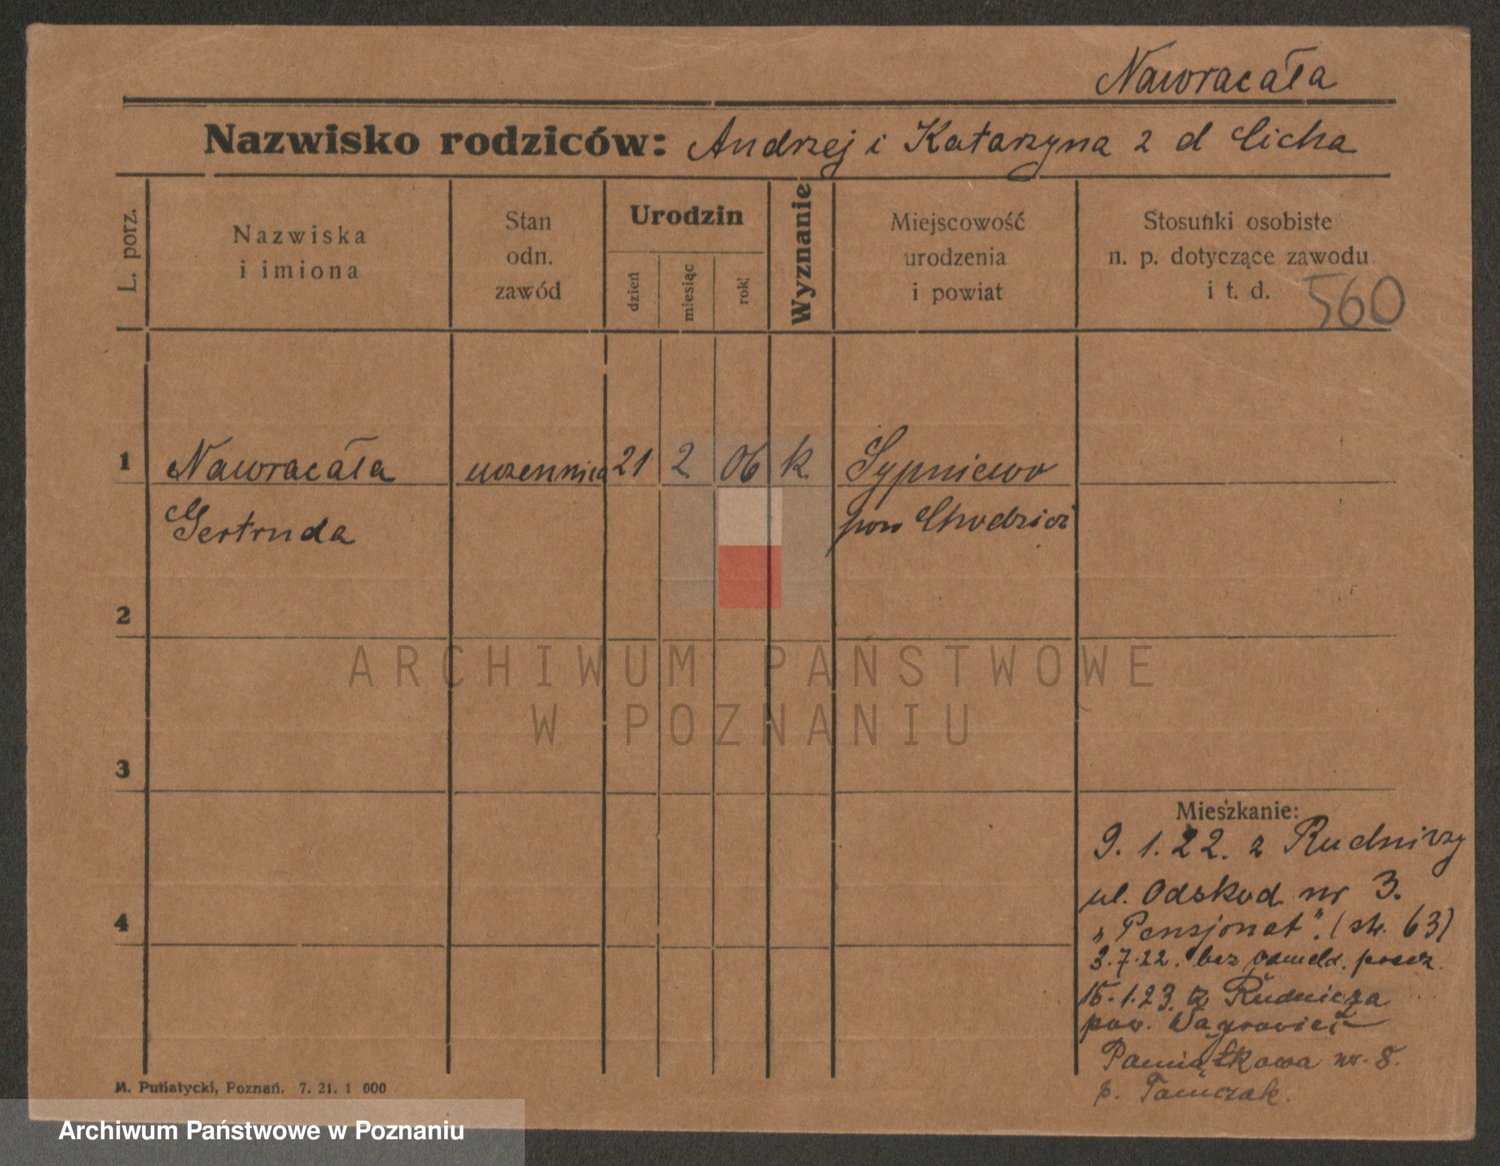 Nawracała
Nazwisko rodziców: Andrzej i Katarzyna z d Cicha
L. porz.
Nazwiska
i imiona
Stan
odn.
zawód
Urodzin
dzień
miesiąc
rok
Wyznanie
Miejscowość
urodzenia
i powiat
Stosunki osobiste
n. p. dotyczące zawodu
i t. d.
560
1 Nawracała uczennica 21 2 06 k Sypniewo
Gertruda pow Chodzież
2
ARCHIWUM PAŃSTWOWE
W POZNANIU
3
Mieszkanie:
9. 1. 22. z Rudniczy
ul. Odskod nr 3.
"Pensjonat". (str. 63)
4
3.7.22. bez odmeld.
15.1.23. z Rudnicza
pow. Wągrowiec
Pamiątkowa nr. 8.
p. Tomczak.
M. Putiatycki, Poznań. 7. 21. 1 000
Archiwum Państwowe w Poznaniu